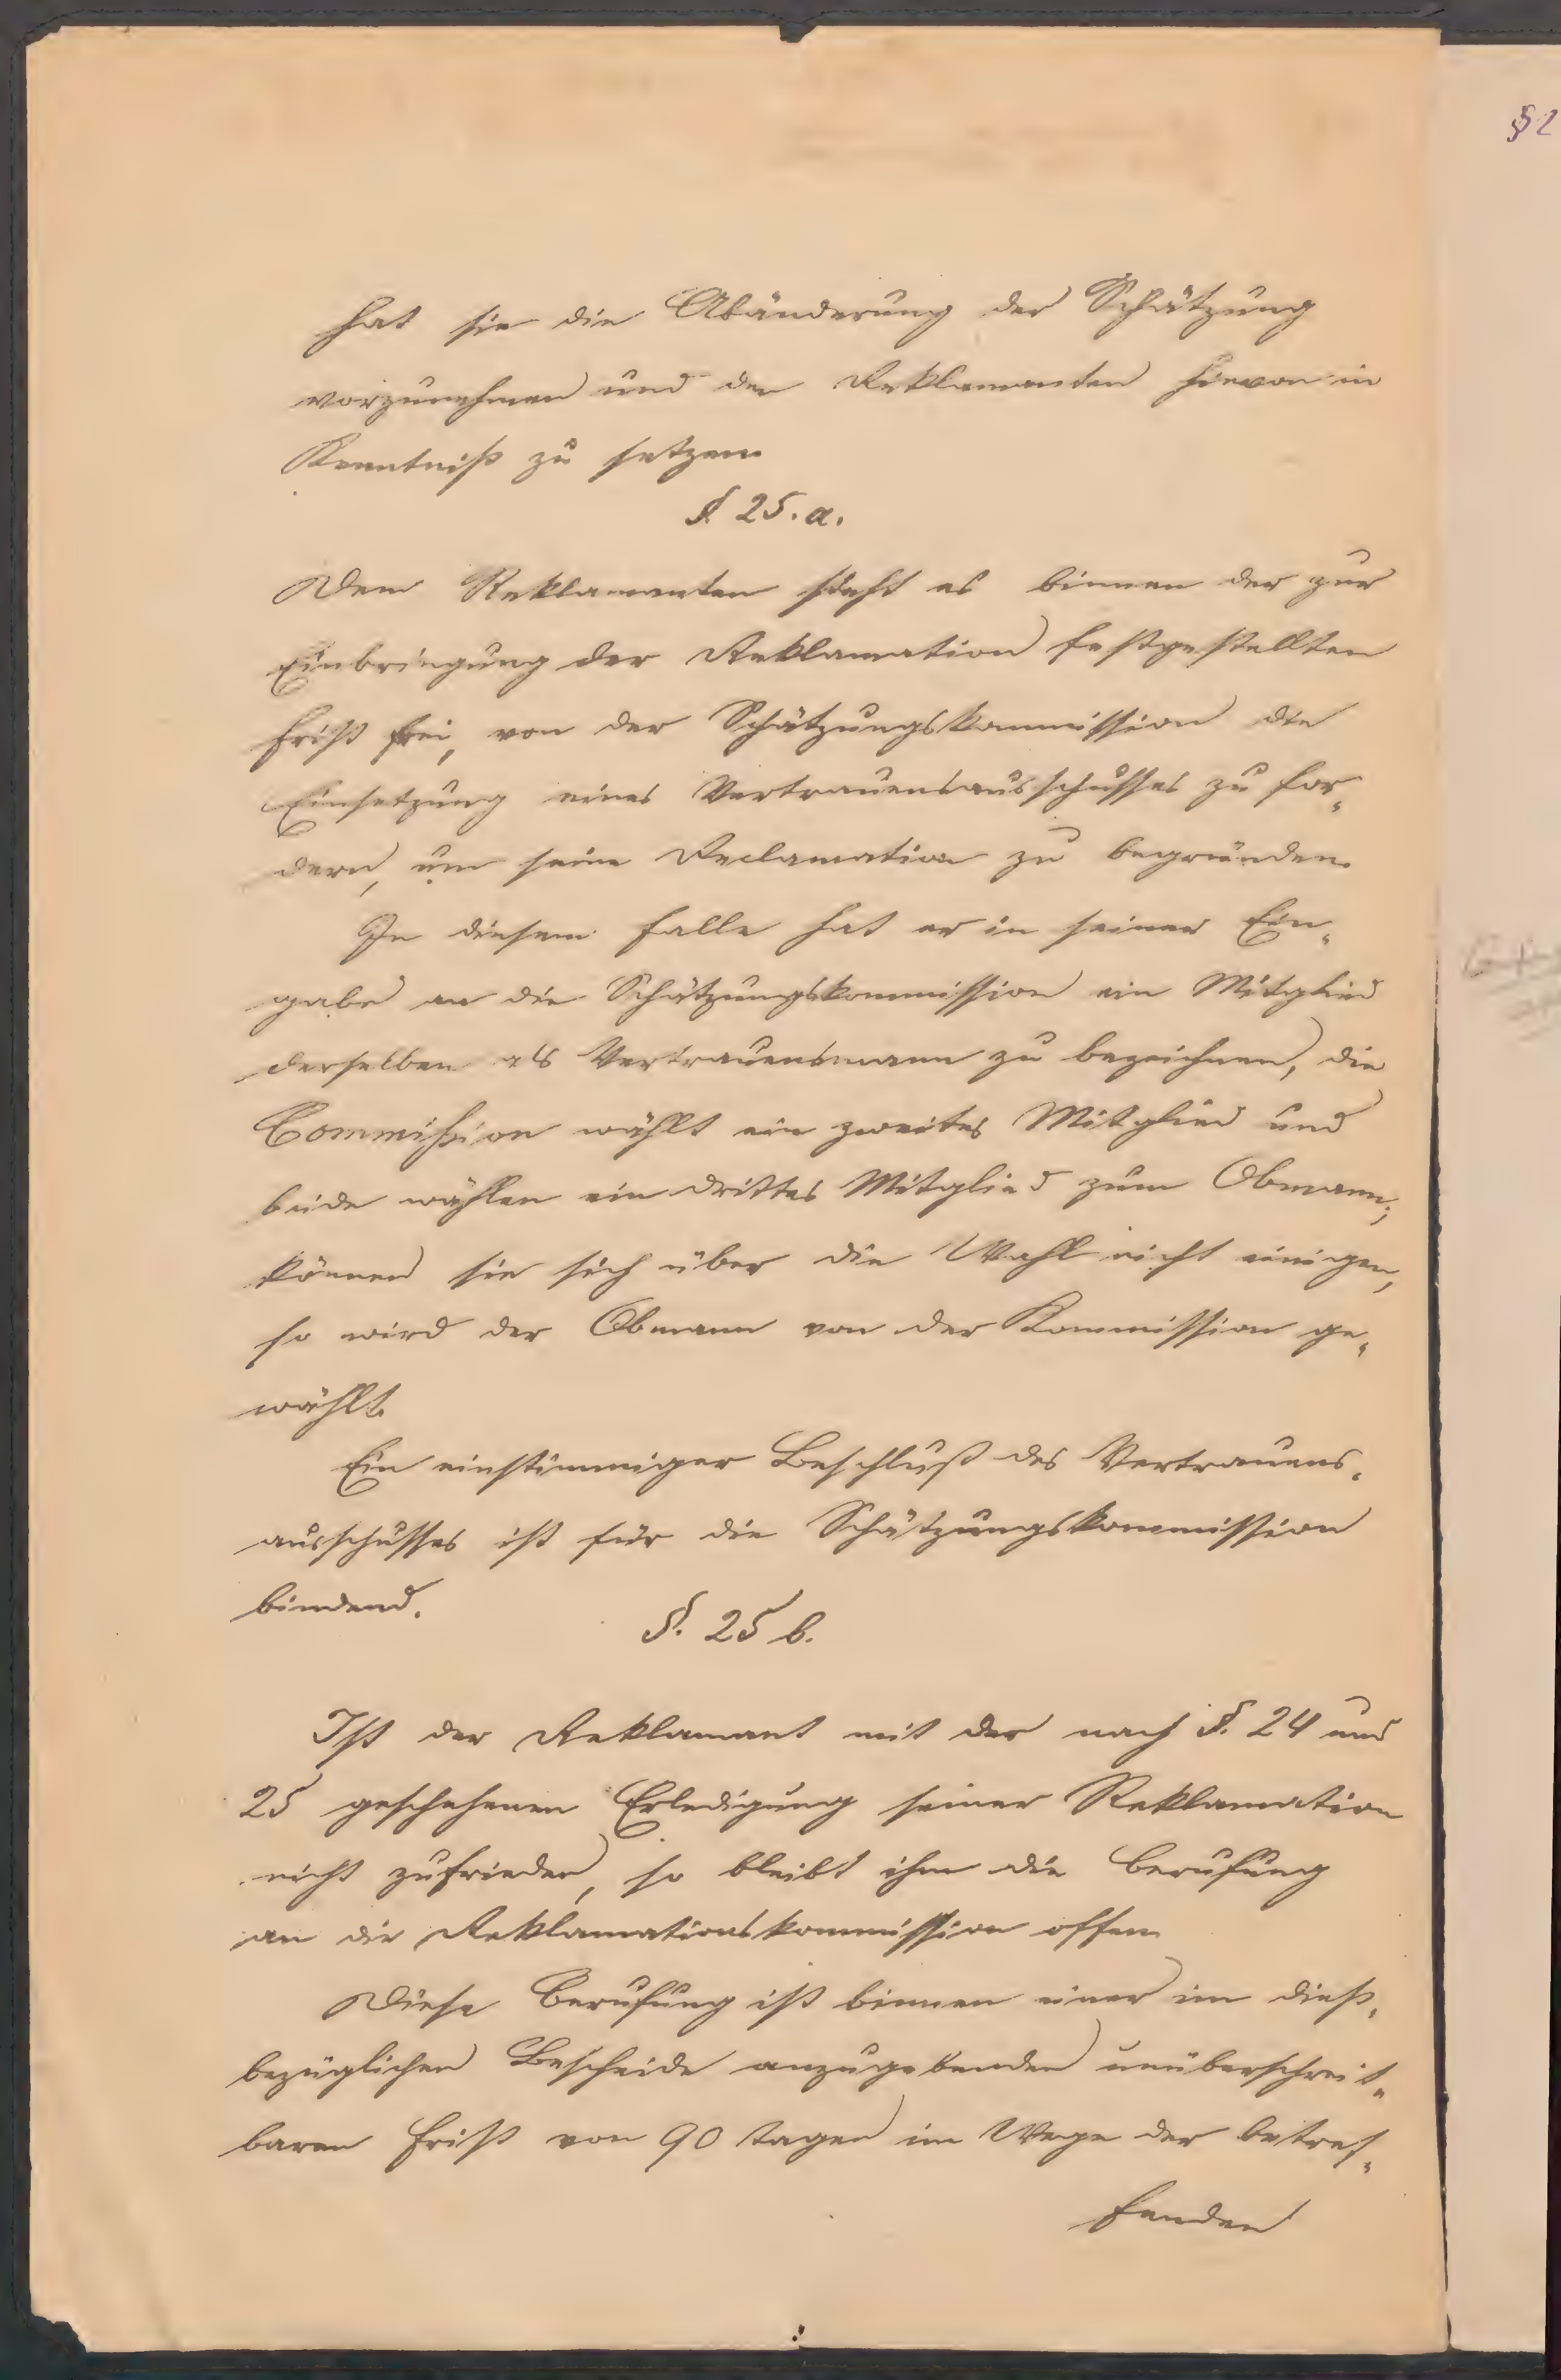 hat sie die Abänderung der Schätzung
vorzunehmen und den Reklamanten hievon in
Kenntniß zu setzen.
§. 25. a.
Dem Reklamanten steht es binnen der zur
Einbringung der Reklamation festgestellten
Frist frei, von der Schätzungskommission die
Einsetzung eines Vertrauensausschusses zu for„
dern, um seine Reclamation zu begründen.
In diesem Falle hat er in seiner Ein„
gabe an die Schätzungskommission ein Mitglied
derselben als Vertrauensmann zu bezeichnen, die
Commission wählt ein zweites Mitglied und
beide wählen ein drittes Mitglied zum Obmann;
können sie sich über die Wahl nicht einigen,
so wird der Obmann von der Kommission ge„
wählt.
Ein einstimmiger Beschluß des Vertrauens„
ausschusses ist für die Schätzungskommission
bindend.
§. 25 b.
Ist der Reklamant mit der nach §. 24 und
25 geschehenen Erledigung seiner Reklamation
nicht zufrieden, so bleibt ihm die Berufung
an die Reklamationskommission offen.
Diese Berufung ist binnen einer im dieß„
bezüglichen Bescheide anzugebenden unüberschreit„
baren Frist von 90 Tagen im Wege der betref„
fenden
§ 2